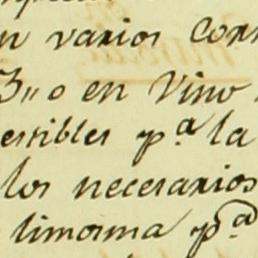 n varios con
3,, o en Vino
ersibles p.ª la
los necesarios
limosna p.ª